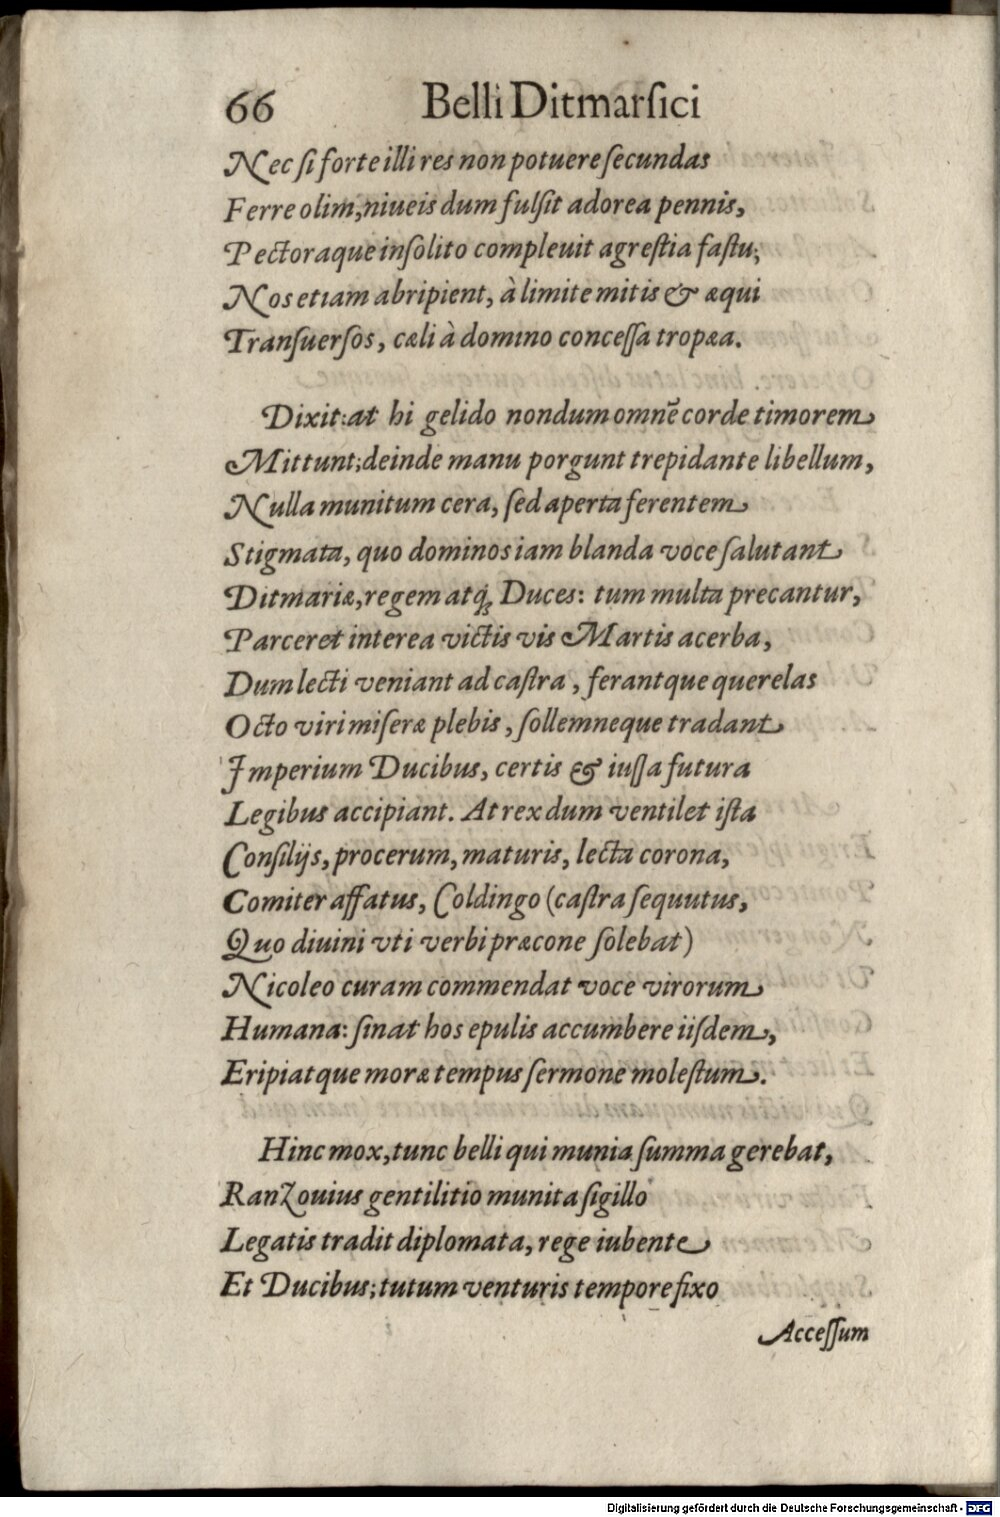 66 Belli Ditmarſici
Nec ſi forte illi res non potuere ſecundas
Ferre olim, niueis dum fulſit adorea pennis,
Pectoraque inſolito compleuit agreſtia faſtu;
Nos etiam abripient, à limite mitis & æqui
Tranſuerſos, cæli à domino conceſſa tropæa.
Dixit: at hi gelido nondum omnē corde timorem
Mittunt; deinde manu porgunt trepidante libellum,
Nulla munitum cera, ſed aperta ferentem
Stigmata, quo dominos iam blanda voce ſalutant
Ditmariæ, regem atq́; Duces: tum multa precantur,
Parceret interea victis vis Martis acerba,
Dum lecti veniant ad caſtra, ferantque querelas
Octo viri miſeræ plebis, ſollemneque tradant
Imperium Ducibus, certis & iuſſa futura
Legibus accipiant. At rex dum ventilet iſta
Conſilijs, procerum, maturis, lecta corona,
Comiter affatus, Coldingo (caſtra ſequutus,
Quo diuini vti verbi præcone ſolebat)
Nicoleo curam commendat voce virorum
Humana: ſinat hos epulis accumbere iiſdem,
Eripiatque moræ tempus ſermone moleſtum.
Hinc mox, tunc belli qui munia ſumma gerebat,
Ranzouius gentilitio munita ſigillo
Legatis tradit diplomata, rege iubente
Et Ducibus; tutum venturis tempore fixo
Acceſſum
Digitalisierung gefördert durch die Deutsche Forschungsgemeinschaft - DFG